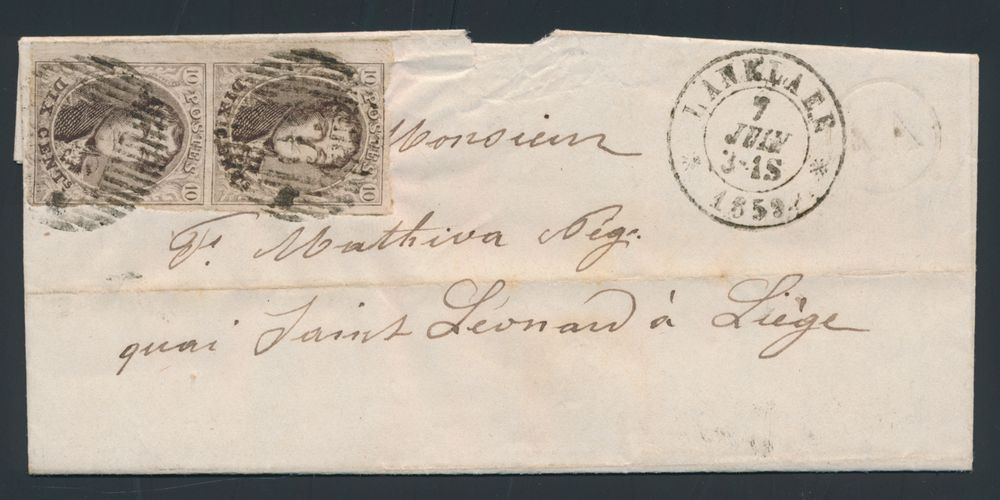 10 POSTES 10
DIX CENTs.
10 POSTES 10
DIX CENTs.
LANKLAER
7
JUIN
3-4S
1858
Monsieur
Fs. Mathiva Négt.
quai Saint Léonard à Liége